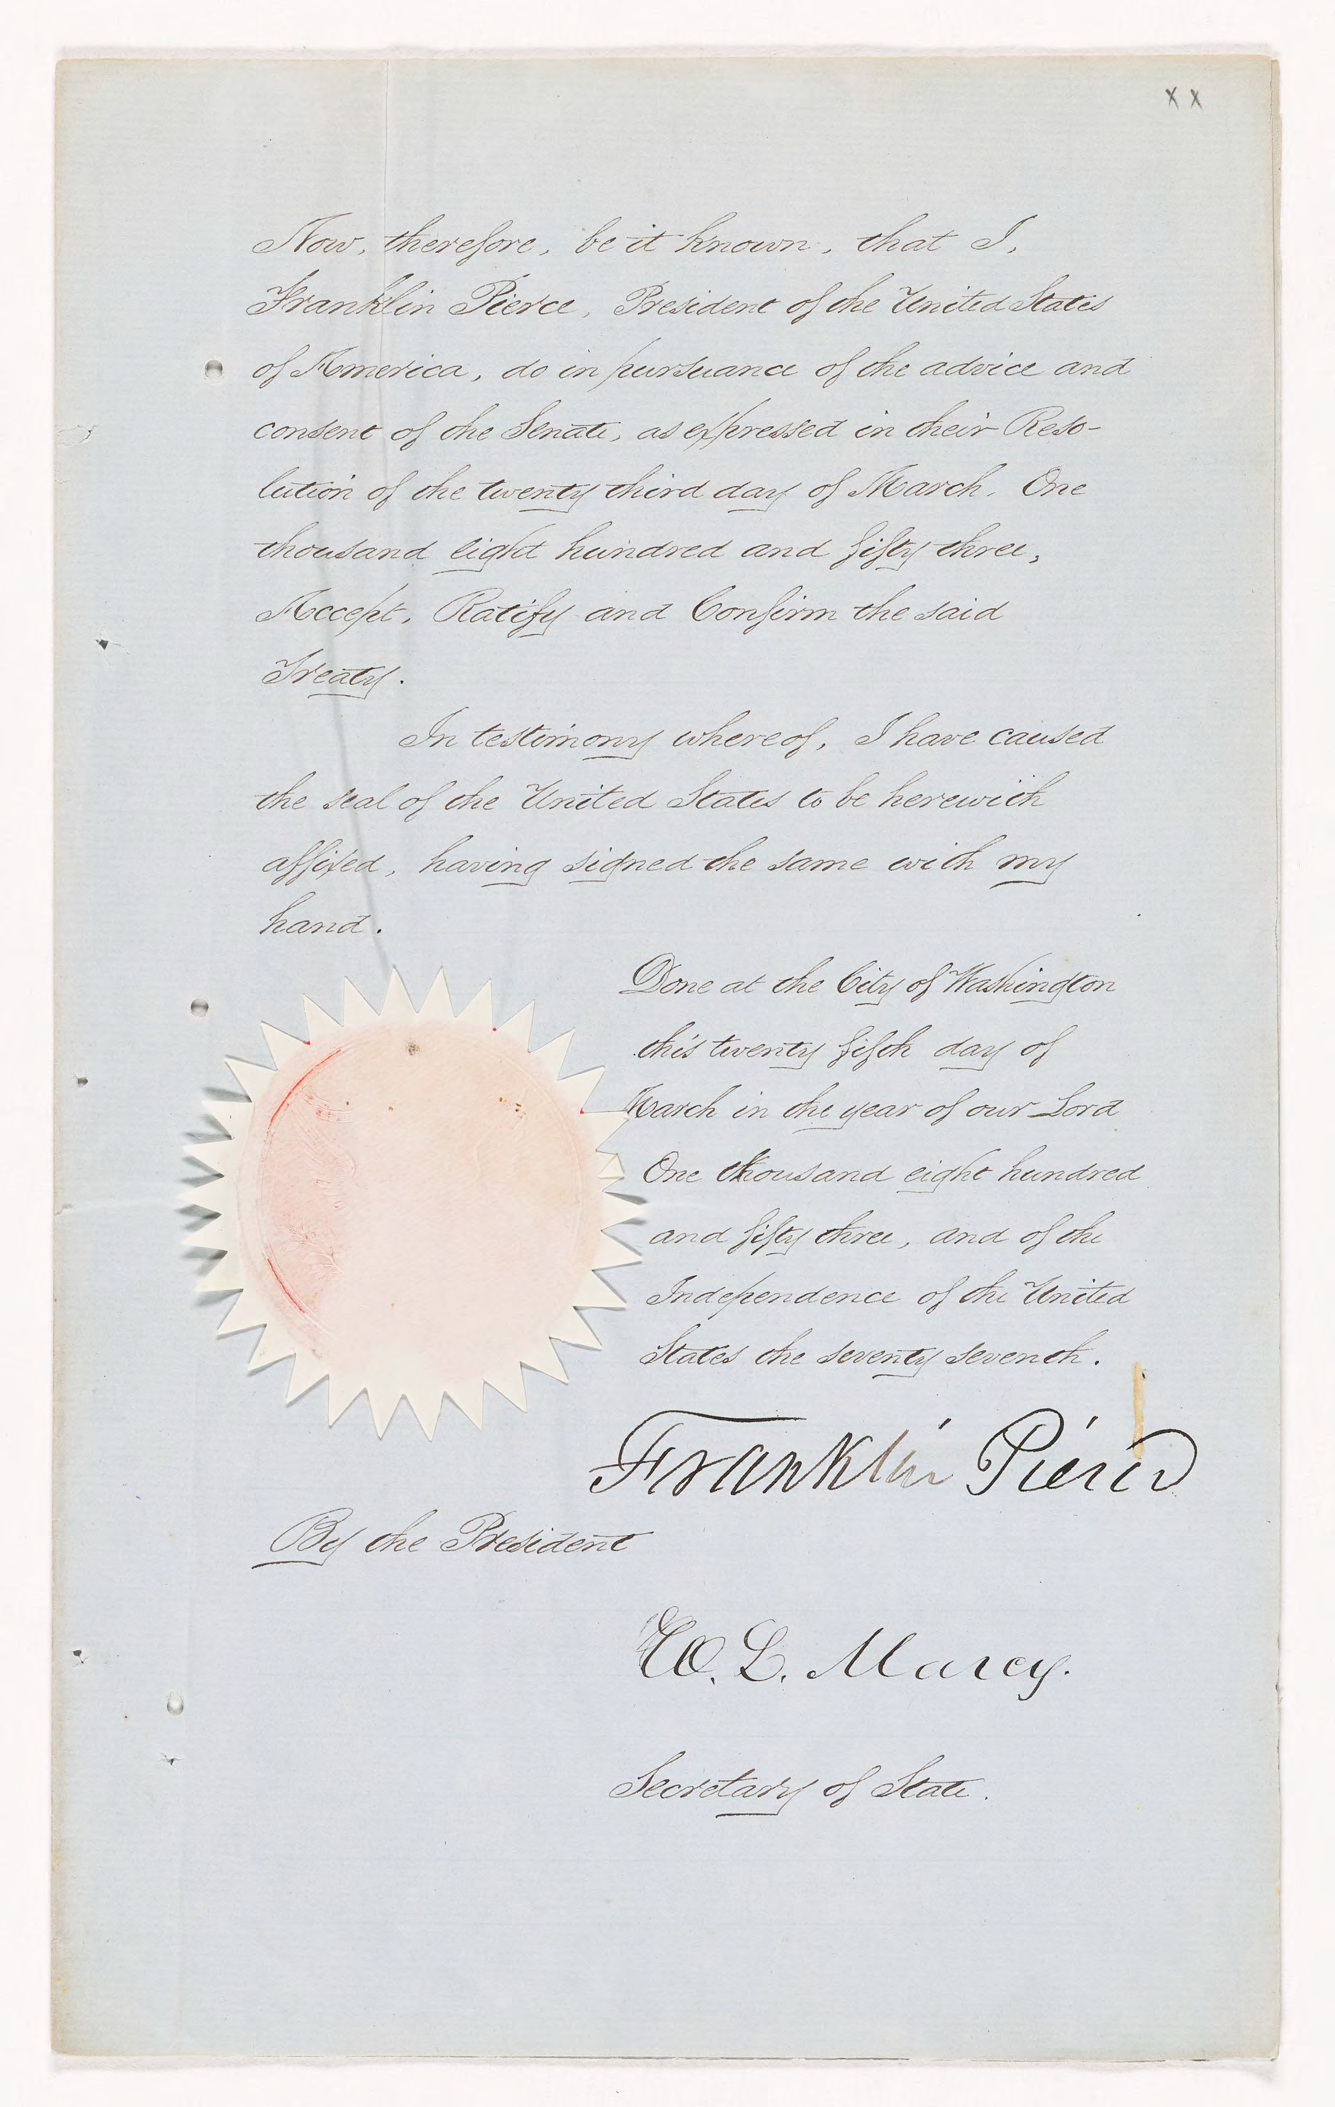 x x
Now, therefore, be it known, that I,
Franklin Pierce, President of the United States
of America, do in pursuance of the advice and
consent of the Senate, as expressed in their Reso-
lution of the twenty third day of March, One
thousand eight hundred and fifty three,
Accept, Ratify and Confirm the said
Treaty.
In testimony whereof, I have caused
the seal of the United States to be herewith
affixed, having signed the same with my
hand.
Done at the City of Washington
this twenty fifth day of
March in the year of our Lord
One thousand eight hundred
and fifty three, and of the
Independence of the United
States the seventy seventh.
Franklin Pierce
By the President
W. L. Marcy.
Secretary of State.